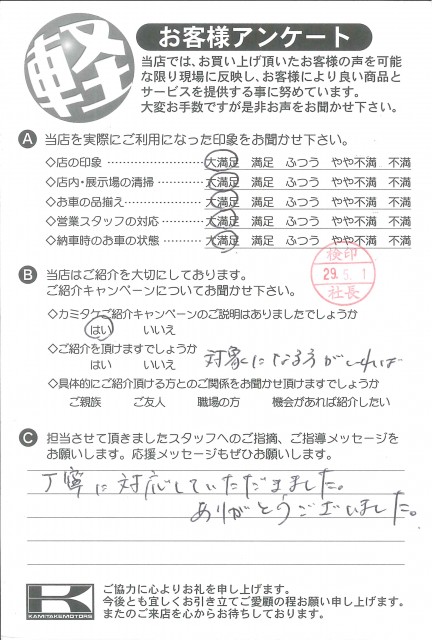 軽
お客様アンケート
当店では、お買い上げ頂いたお客様の声を可能
な限り現場に反映し、お客様により良い商品と
サービスを提供する事に努めています。
大変お手数ですが是非お声をお聞かせ下さい。
A 当店を実際にご利用になった印象をお聞かせ下さい。
◇店の印象 大満足 満足 ふつう やや不満 不満
◇店内・展示場の清掃 大満足 満足 ふつう やや不満 不満
◇お車の品揃え 大満足 満足 ふつう やや不満 不満
◇営業スタッフの対応 大満足 満足 ふつう やや不満 不満
◇納車時のお車の状態 大満足 満足 ふつう やや不満 不満
検印
29.5.1
社長
B 当店はご紹介を大切にしてあります。
ご紹介キャンペーンについてお聞かせ下さい。
◇カミタケご紹介キャンペーンのご説明はありましたでしょうか
はい いいえ
◇ご紹介を頂けますでしょうか
はい いいえ
対象になる方がいれば
◇具体的にご紹介頂ける方とのご関係をお聞かせ頂けますでしょうか
ご親族 ご友人 職場の方 機会があれば紹介したい
C 担当させて頂きましたスタッフへのご指摘、ご指導メッセージを
お願いします。応援メッセージもぜひお願いします。
丁寧に対応していただきました。
ありがとうございました。
K
KAMITAKEMOTORS
ご協力に心よりお礼を申し上げます。
今後とも宜しくお引き立てご愛顧の程お願い申し上げます。
またのご来店を心からお待ちしております。